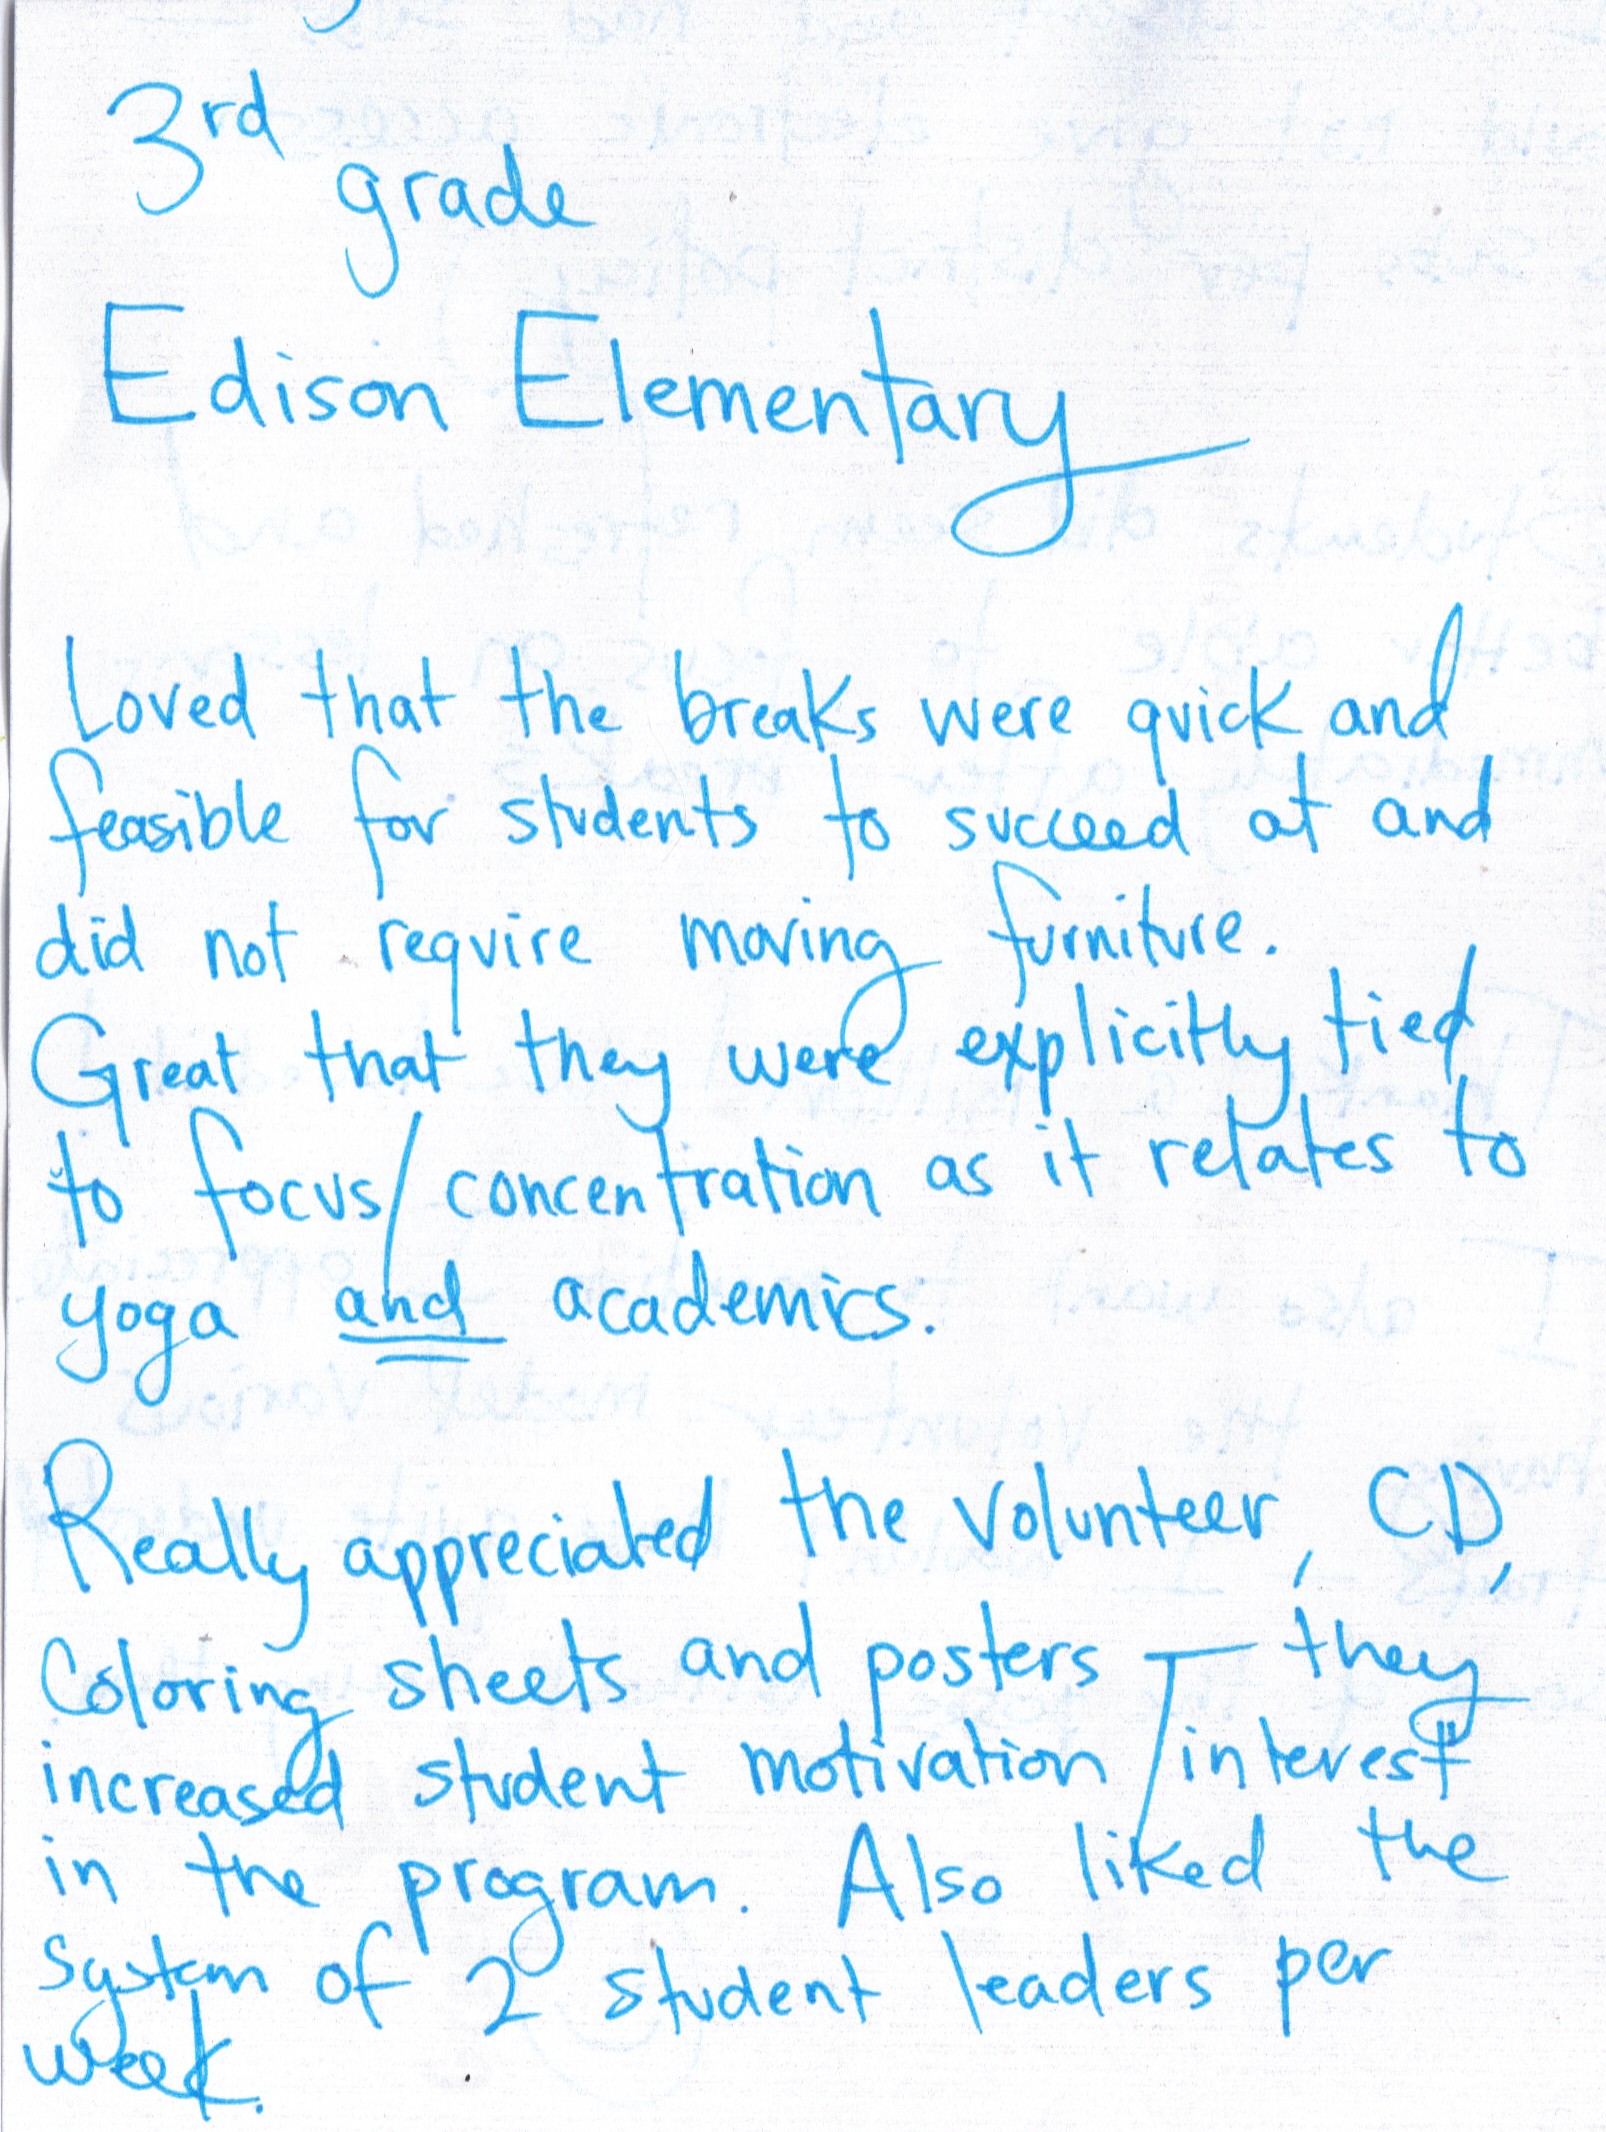 3rd
grade
Edison Elementary
Loved that the breaks were quick and
feasible for students to succeed at and
did not require moving furniture.
Great that they were explicitly tied
to focus/concentration as it relates to
yoga and academics.
Really appreciated the volunteer, CD,
Coloring sheets and posters — they
increased student motivation/interest
in the program. Also liked the
system of 2 student leaders per
week.